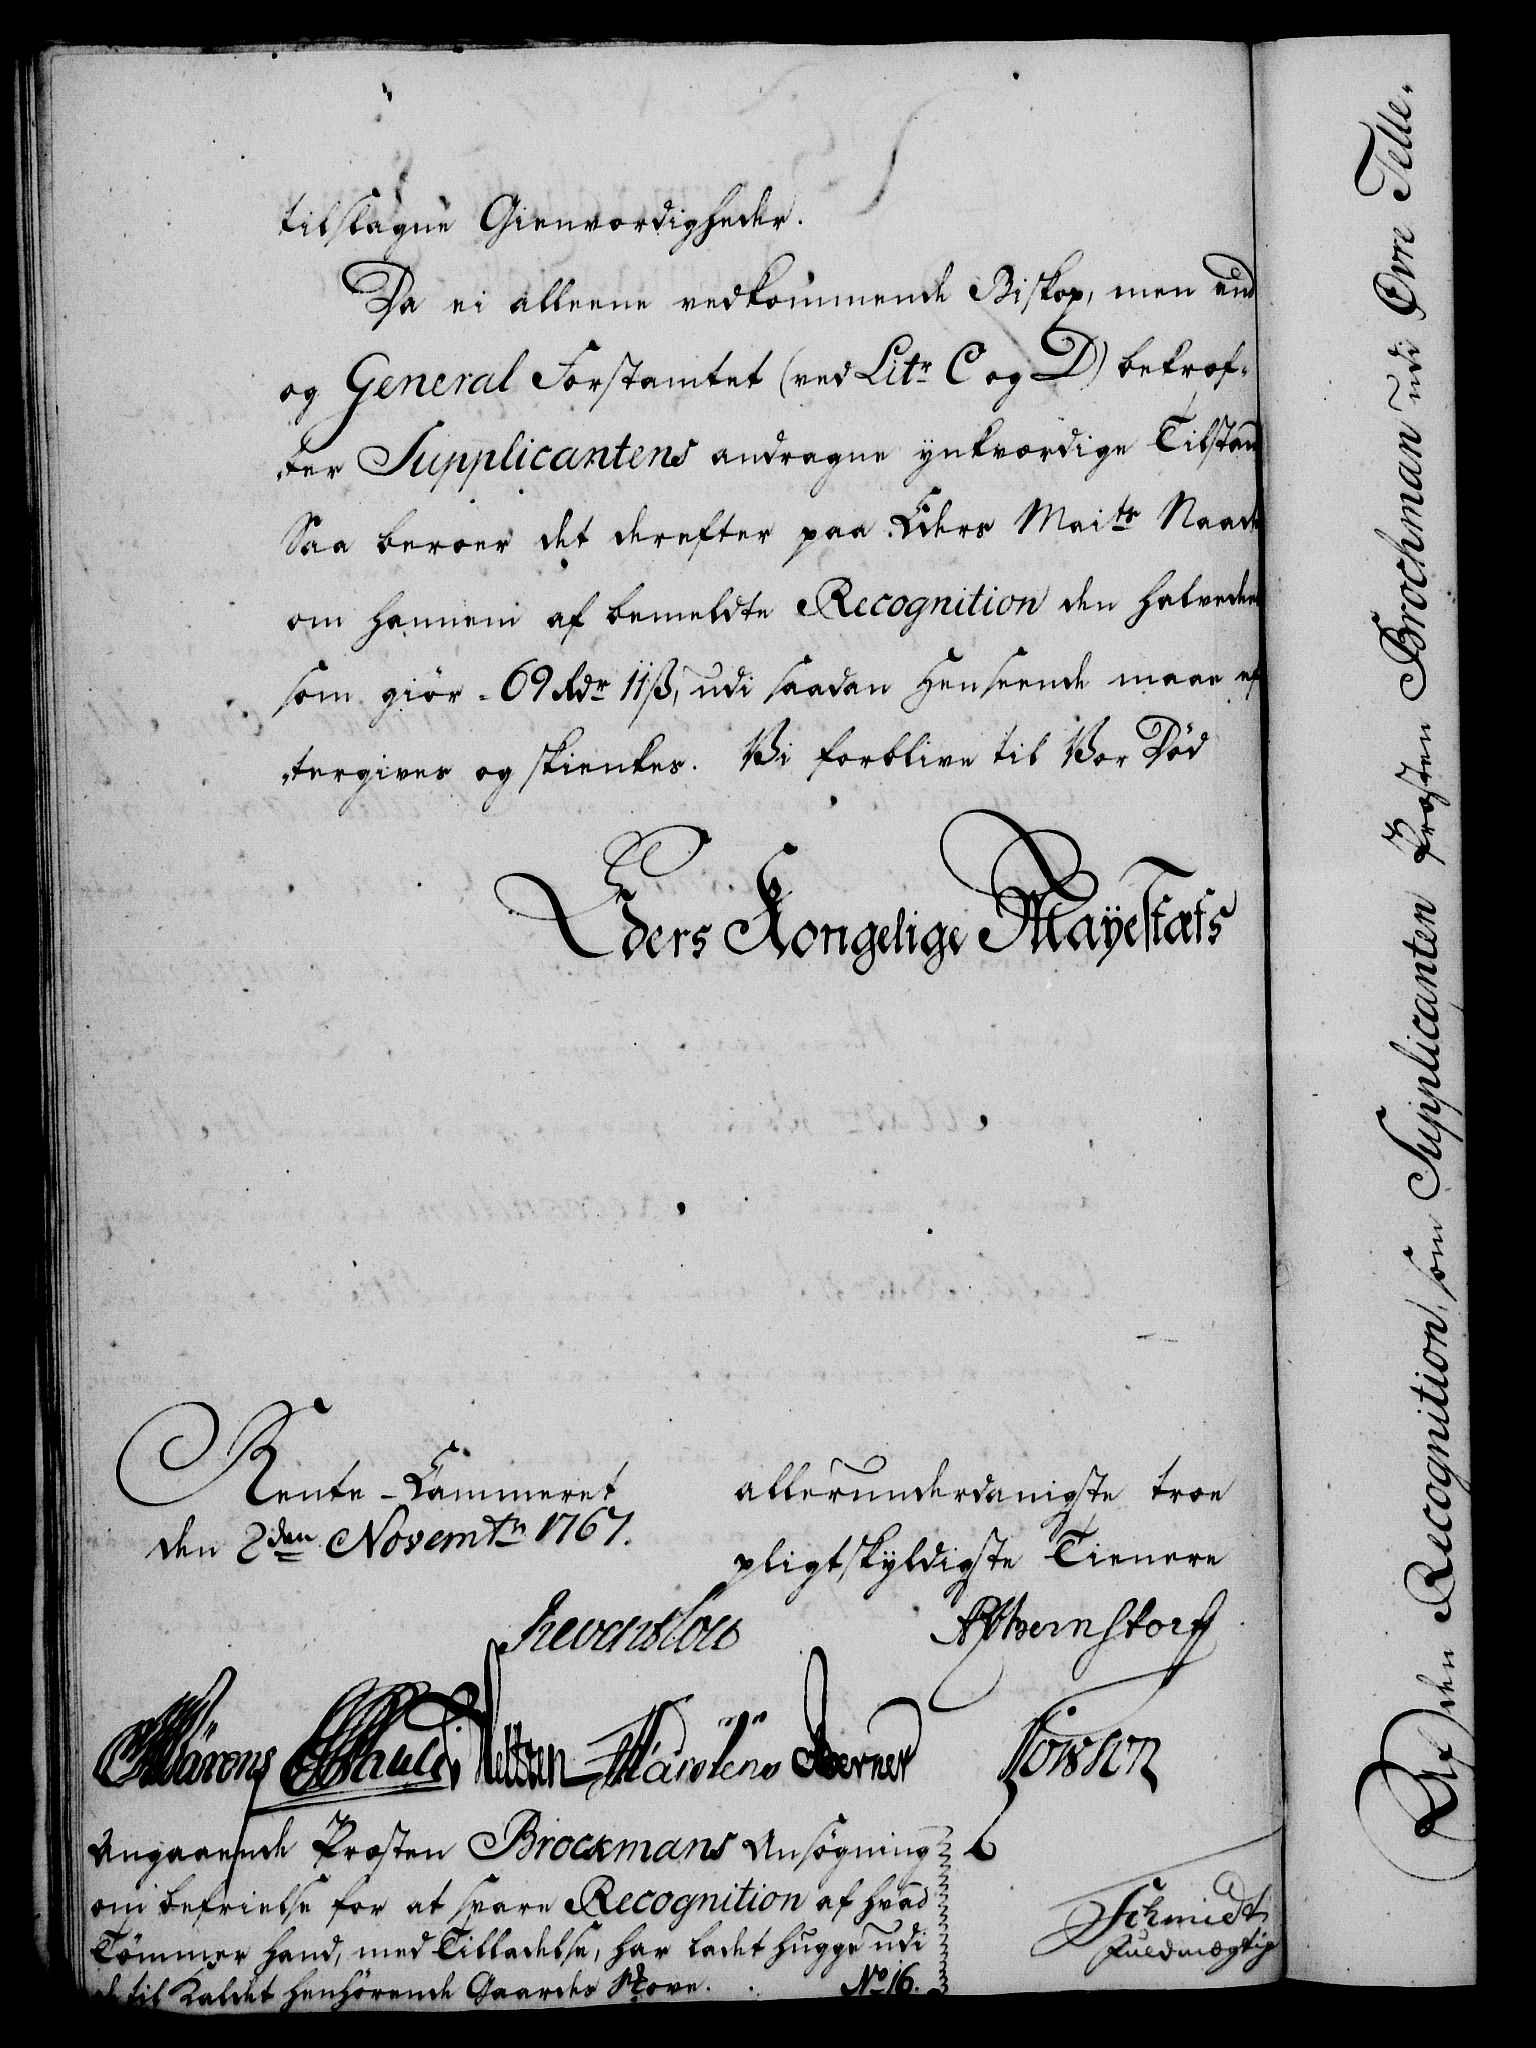 tilslagne Gienvordigheder.
Da ei alleene vedkommende Biskop, men end
og General Forstamtet (ved Litr C og D) bekræf-
ter Supplicantens andragne ynkværdige Tilstan
Saa beroer det derefter paa Eders Maits Naade
om hannem af bemeldte Recognition den halvedeel
som giør - 69 Rdr 11ß, udi saadan Henseende maae ef
tergives og skienkes. Vi forblive til Vor Død
Eders Kongelige Mayestæts
Rente-Cammeret
den 2den Novembr 1767.
allerunderdanigste troe
pligtskyldigste Tienere
Reventlow
Bernstorff
Wärens Schult Neltsen Martens Berner
Angaaende Præsten Brockmans Ansøgning
om befrielse for at svare Recognition af hvad
Tømmer hand, med Tilladelse, har ladet hugge udi
de til Kaldet henhørende Gaarders Skove. No 16.
Schmidt
Fuldmægtig
Af den Recognition, som Supplicanten Præsten Brochman udi Øvre Telle-